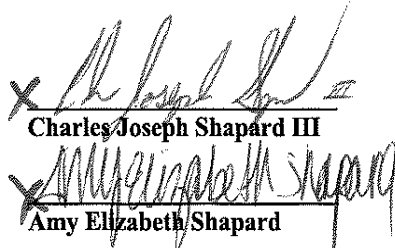 X Ch Joseph Shapard III
Charles Joseph Shapard III
X Amy Elizabeth Shapard
Amy Elizabeth Shapard